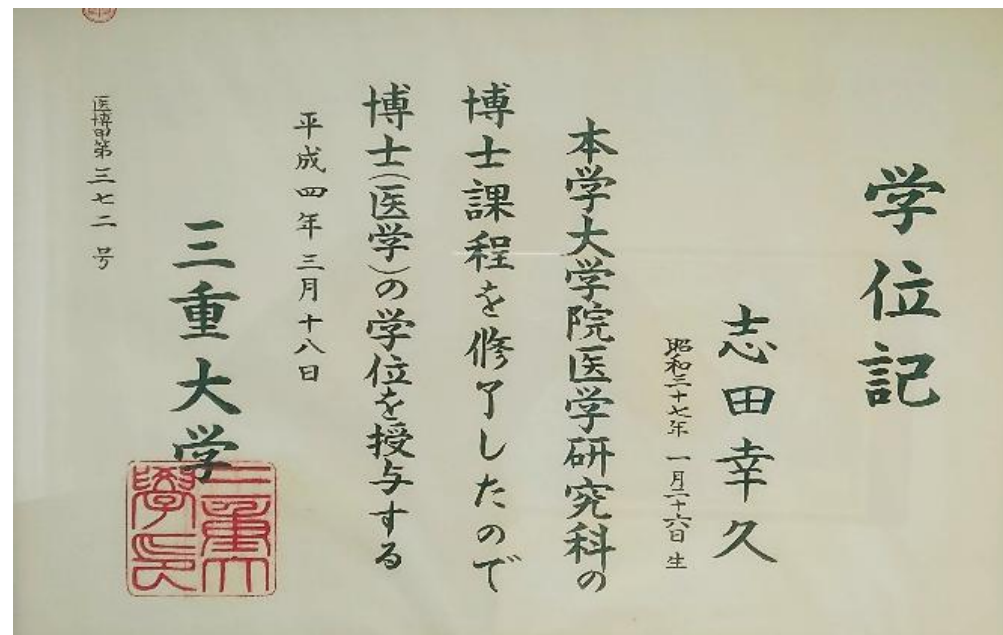 学位記
志田幸久
昭和三十七年 一月二十六日 生
本学大学院医学研究科の
博士課程を修了したので
博士(医学)の学位を授与する
平成四年三月十八日
三重大学
医博甲第三七二号